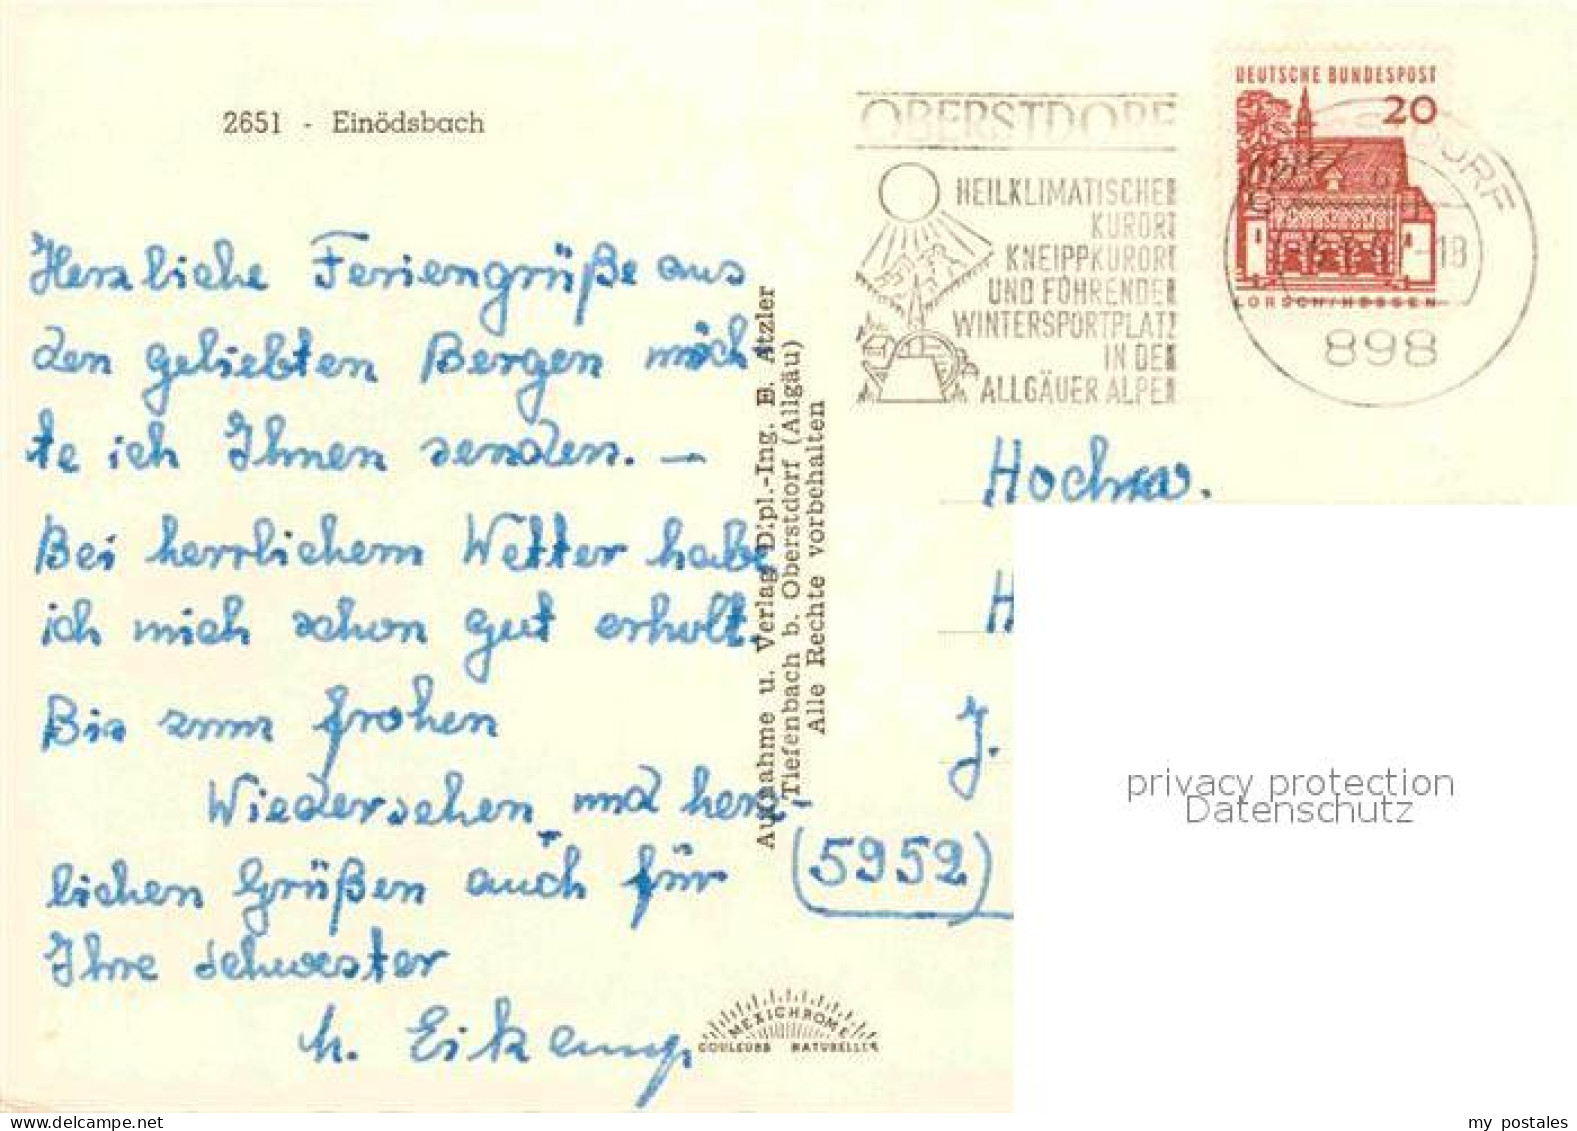 2651 - Einödsbach
Herzliche Feriengrüße aus
den geliebten Bergen möch
te ich Ihnen senden. —
Bei herrlichem Wetter habe
ich mich schon gut erholt.
Bis zum frohen
Wiedersehen und herz-
lichen Grüßen auch für
Ihre Schwester
M. Eikamp
Aufnahme u. Verlag Dipl.-Ing. E. Atzler
Tiefenbach b. Oberstdorf (Allgäu)
Alle Rechte vorbehalten
MEXICHROME
COULEURS NATURELLES
OBERSTDORF
HEILKLIMATISCHER
KURORT
KNEIPPKURORT
UND FÜHRENDER
WINTERSPORTPLATZ
IN DEN
ALLGÄUER ALPEN
DEUTSCHE BUNDESPOST
20
LORSCH/HESSEN
-18
898
Hochw.
H
J.
(5952)
privacy protection
Datenschutz
my postales